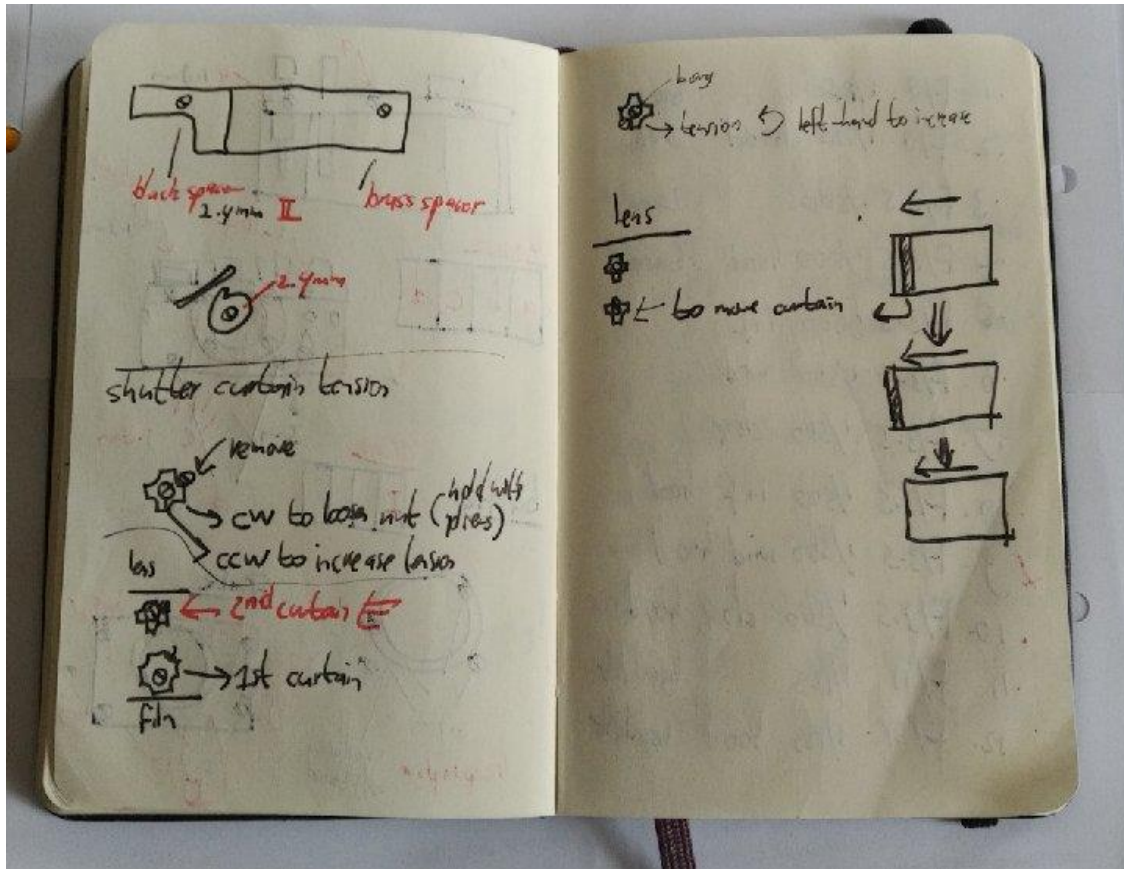 2.4mm II
brass spacer
2.4mm
shutter curtain tension
remove
cw to loosen nut (hold with pliers)
ccw to increase tension
lens
2nd curtain E
1st curtain
film
tension left-hand to increase
lens
to move curtain